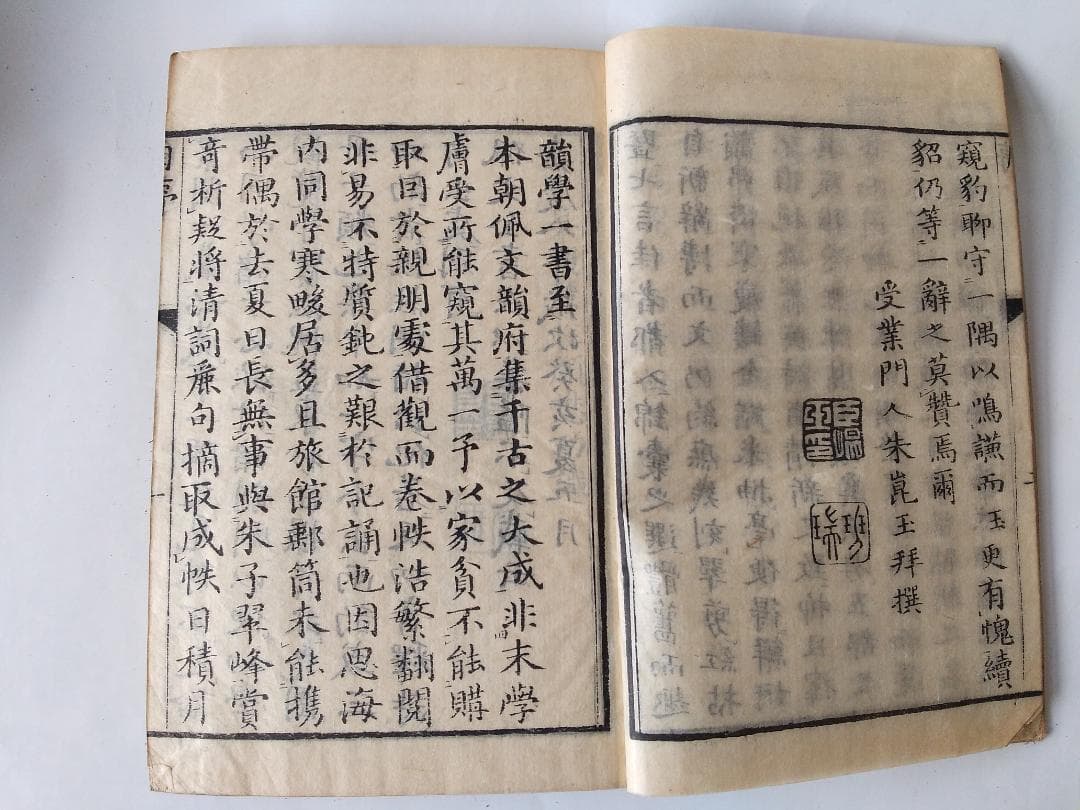 窺豹聊守一隅以鳴謙而玉更有愧續
貂仍等一辭之莫贊焉爾
受業門人朱崑玉拜撰
韻學一書至
本朝佩文韻府集千古之大成非末學
膚受所能窺其萬一予以家貧不能購
取回於親朋處借觀而卷帙浩繁翻閱
非易不特質鈍之艱於記誦也因思海
內同學寒畯居多且旅館郵筒未能携
帶偶於去夏日長無事與朱子翠峰賞
奇析疑將清詞麗句摘取成帙日積月
自序